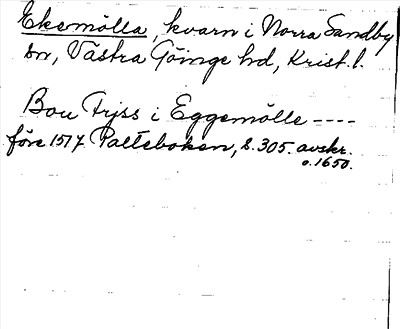 Ekemölla, kvarn i Norra Sandby
sn, Västra Göinge hd, Krist. l.
Bou Fryss i Eggemölle ----
före 1517 Palteboken, s. 305. avskr.
o. 1650.